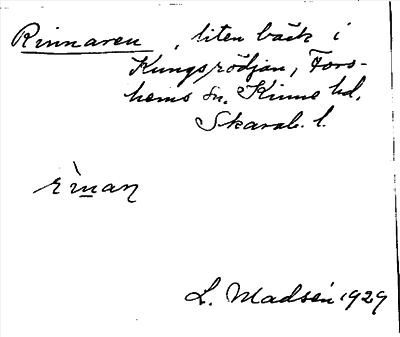 Rinnaren, liten bäck i
Kungsrödjan, Fors-
hems sn. Kinne hd.
Skarab. l.
L. Madsén 1929